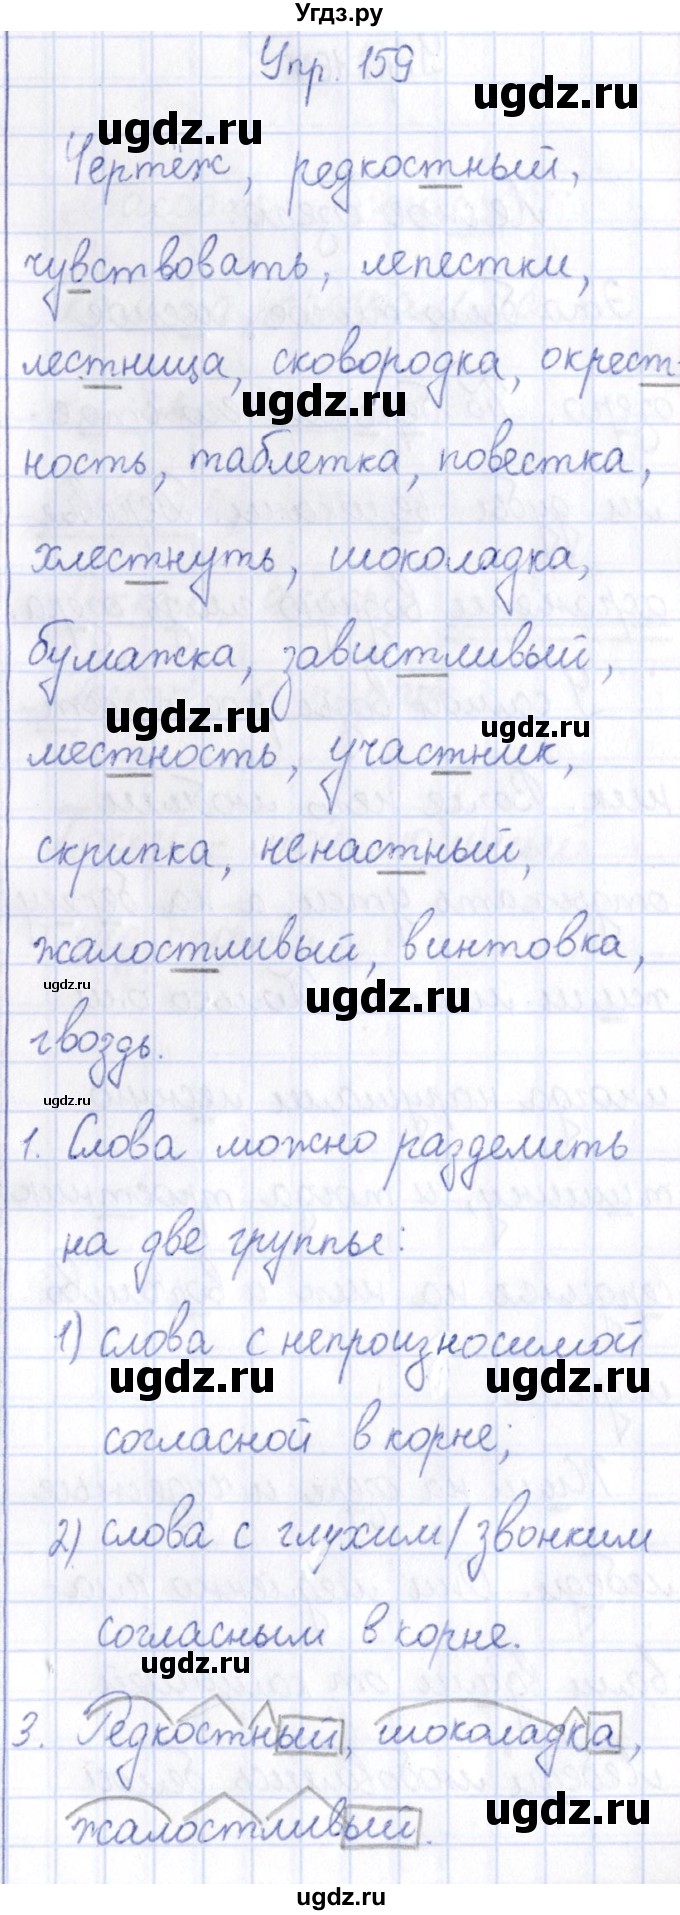 Угдз.ру
Упр. 159
ugdz.ru
ugdz.ru
Чертёж, редкостный,
чувствовать, лепестки,
лестница, сковородка, окрест-
ugdz.ru
ность, таблетка, повестка,
хлестнуть, шоколадка,
бумажка, завистливый,
ugdz.ru
ugdz.ru
местность, участник,
скрипка, ненастный,
жалостливый, винтовка,
ugdz.ru
ugdz.ru
гвоздь.
ugdz.ru
1. Слова можно разделить
на две группы:
1) слова с непроизносимой
ugdz.ru
ugdz.ru
согласной в корне;
2) слова с глухим/звонким
согласным в корне.
ugdz.ru
3. Редкостный, шоколадка,
ugdz.ru
жалостливый.
ugdz.ru